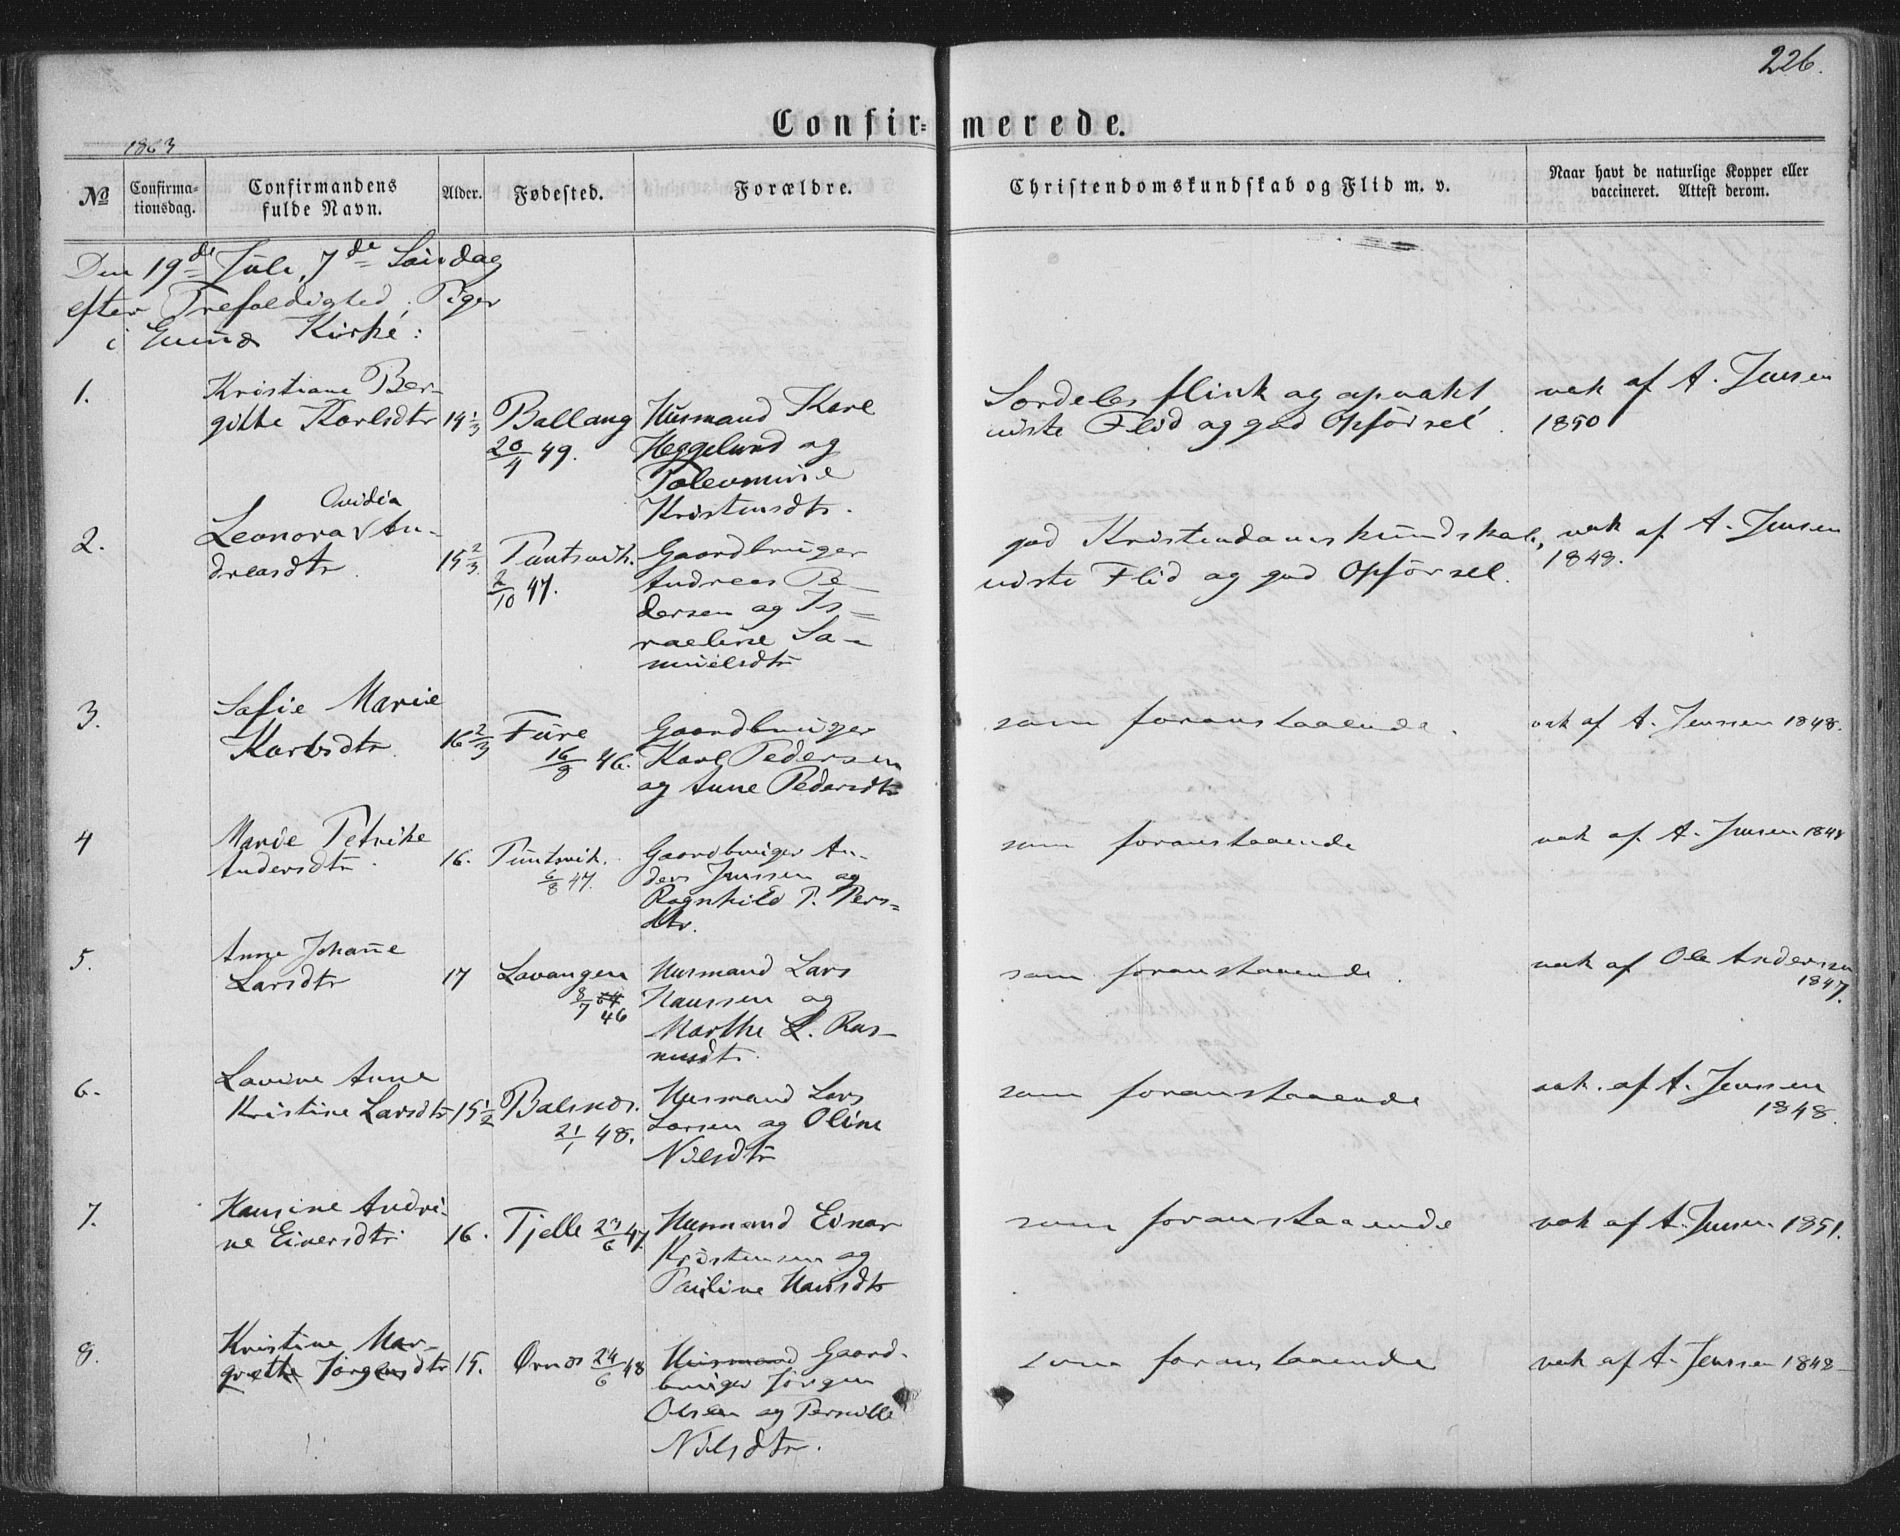 226.
Confir= merede.
1863
No Confirma-tionsdag. Confirmandens fulde Navn. Alder. Fødested. Forældre. Christendomskundskab og Flid m. v. Naar havt de naturlige Kopper eller vaccineret. Attest derom.
Den 19de Juli, 7de Søndag
efter Trefoldighed, Piger
i Kirke:
1. Kristiane Ber-
gitte Karlsdtr 14 1/3 Ballang
20/4 49.
Husmand Karl
Heggelund og
Kristensdtr.
Særdeles flink og opvakt
viste Flid og god Opførsel.
vak af A. Jensen
1850
2. Leonora Ovidia An-
dreasdtr 15 2/3
2/10 47.
Gaardbruger
Andreas Pe-
dersen og Is=
raeline Sa-
muelsdtr
god Kristendomskundskab,
viste Flid og god Opførsel.
vak af A. Jensen
1848.
3. Sofie Marie
Karlsdtr 16 2/3 Fure
16/9 46.
Gaardbruger
Karl Pedersen
og Anne Pedersdtr
som foranstaaende.
vak af A. Jenssen 1848.
4 Marie Petrike
Andersdtr. 16.
6/8 47.
Gaardbruger An-
ders Jenssen og
Ragnhild P. Pers=
dtr.
som foranstaaende
vak af A. Jensen 1848
5. Anne Johanne
Larsdtr 17 Lavangen
8/7 46
Husmand Lars
Hanssen og
Marthe L. Ras-
musdtr.
som foranstaaende.
vak af Ole Andersen
1847.
6. Lovine Anne
Kristine Larsdtr 15 1/2 Balsnes.
21/1 48.
Husmand Lars
Larsen og Oline
Nilsdtr
som foranstaaende
vak. af A. Jenssen
1848.
7. Hansine Andri-
ne Einersdtr 16. Tjelle 23/6 47.
Husmand Einar
Kristensen og
Pauline Hansdtr
som foranstaaende
vak af A. Jensen 1851.
8. Kristine Mar-
grethe Jørgensdtr 15. Ørnes 24/6 48
Husmand Gaard-
bruger Jørgen
Olsen og Pernille
Nilsdtr.
som foranstaaende
vak af A. Jenssen 1848